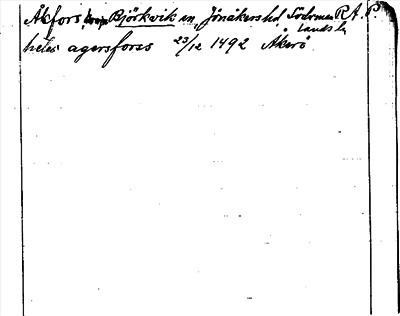 Åkfors, Björkvik sn, Jönåkers hd, Södermanlands l. RA. P.
heles agersforss 23/12 1492 Åkerö